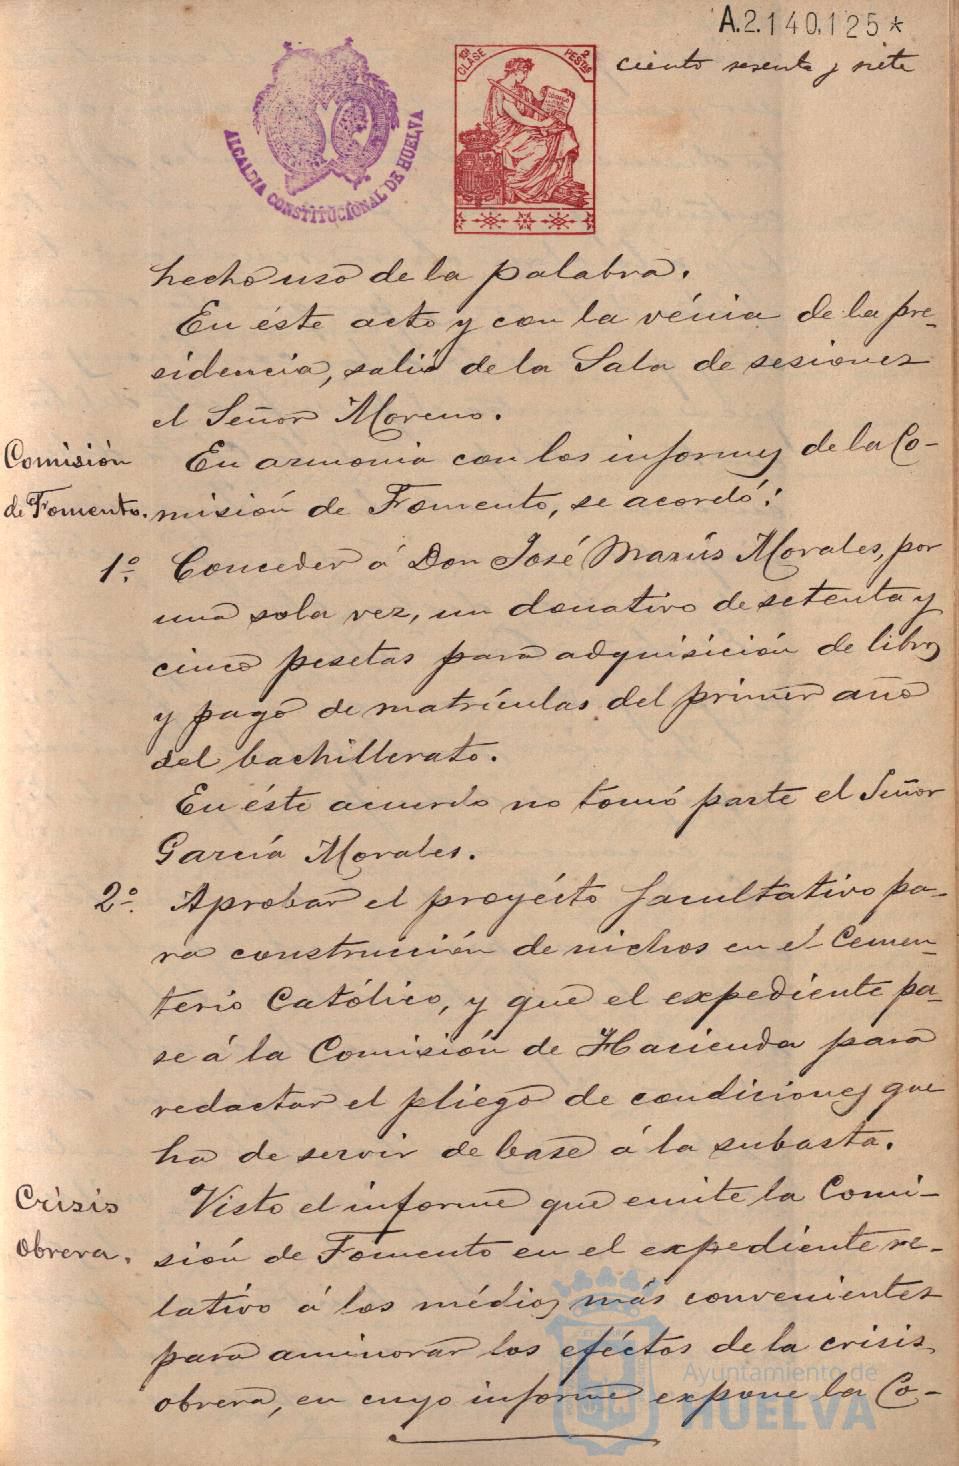 A.2.140,125*
ciento sesenta y siete
10ª CLASE
2 PESTAS
ALCALDIA CONSTITUCIONAL DE HUELVA
hecho uso de la palabra.
En éste acto y con la vénia de la pre-
sidencia, salió de la Sala de sesiones
el Señor Moreno.
Comisión
de Fomento.
En armonia con los informes de la Co-
misión de Fomento, se acordó:
1º. Conceder á Don José Marús Morales, por
una sola vez, un donativo de setenta y
cinco pesetas para adquisición de libros
y pago de matrículas del primer año
del bachillerato.
En éste acuerdo no tomó parte el Señor
García Morales.
2º. Aprobar el proyécto facultativo pa-
ra construcción de nichos en el Cemen-
terio Católico, y que el expediente pa-
se á la Comisión de Hacienda para
redactar el pliego de condiciones que
ha de servir de base á la subasta.
Crisis
obrera.
Visto el informe que emite la Comi-
sión de Fomento en el expediente re-
lativo á los médios más convenientes
para aminorar los eféctos de la crisis
obrera, en cuyo informe expone la Co-
Ayuntamiento de
HUELVA